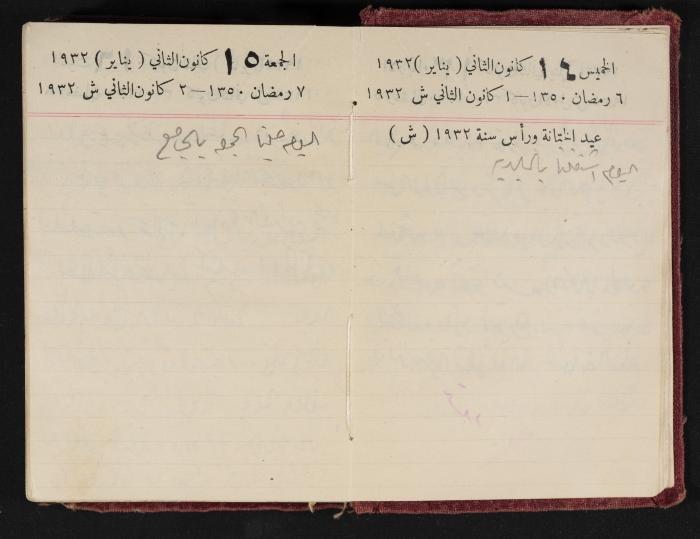 الخميس ١٤ كانون الثاني ( يناير ) ١٩٣٢
٦ رمضان ١٣٥٠ — ١ كانون الثاني ش ١٩٣٢
عيد الختانة ورأس سنة ١٩٣٢ ( ش )
اليوم اشتغلنا بالبلديه
الجمعة ١٥ كانون الثاني ( يناير ) ١٩٣٢
٧ رمضان ١٣٥٠ — ٢ كانون الثاني ش ١٩٣٢
اليوم صلينا الجمعه بالجامع